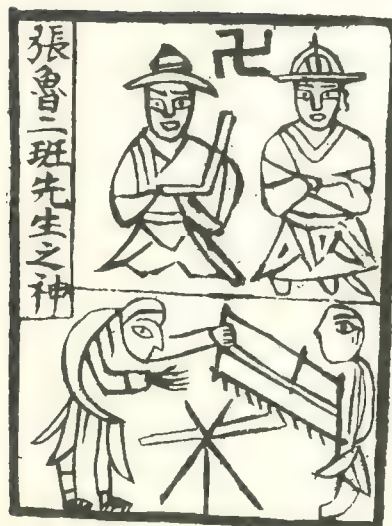 張魯二班先生之神